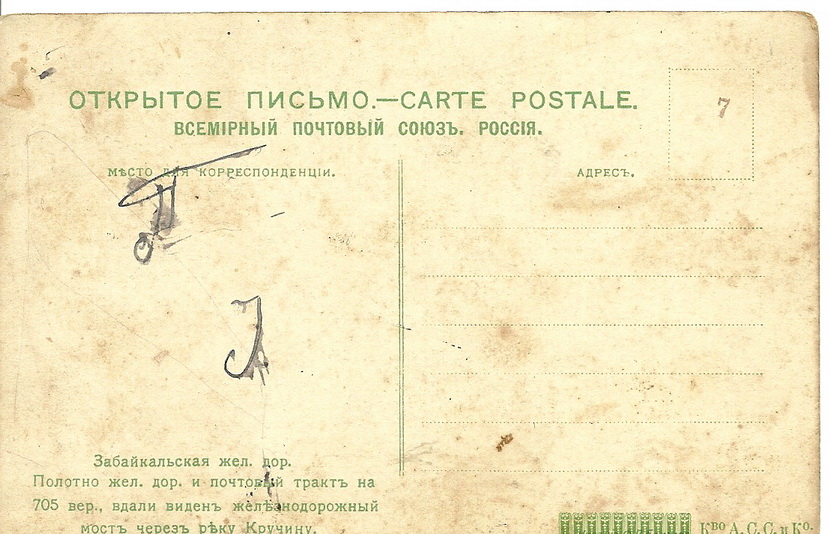 ОТКРЫТОЕ ПИСЬМО.—CARTE POSTALE.
ВСЕМІРНЫЙ ПОЧТОВЫЙ СОЮЗЪ. РОССІЯ.
7
МѢСТО ДЛЯ КОРРЕСПОНДЕНЦІИ.
АДРЕСЪ.
Забайкальская жел. дор.
Полотно жел. дор. и почтовый трактъ на
705 вер., вдали виденъ желѣзнодорожный
мостъ черезъ рѣку Кручину.
Кво А. С. С. и Ко.